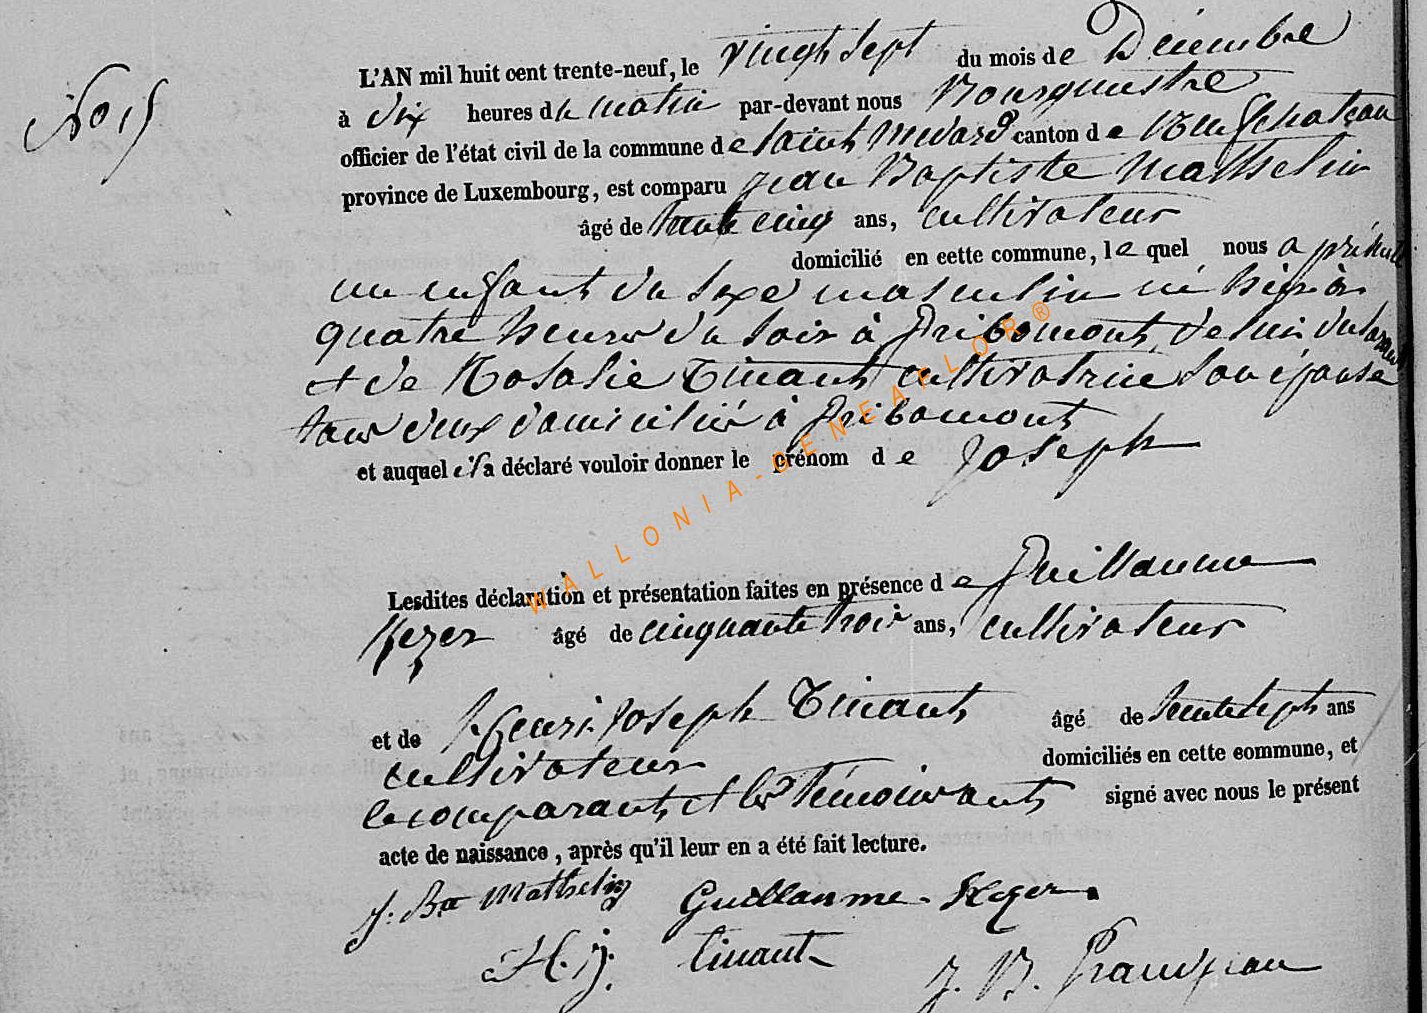 No 15
L'AN mil huit cent trente-neuf, le vingt sept du mois de Décembre
à dix heures du matin par-devant nous Bourguestre
officier de l'état civil de la commune de Saint Médard canton de Neufchateau
province de Luxembourg, est comparu Jean Baptiste Mathelin
âgé de trente cinq ans, cultivateur
domicilié en cette commune, le quel nous a présenté
un enfant du sexe masculin né hier à
quatre heures du soir à Gribomont, de lui déclarant
et de Rosalie Tinant cultivatrice son épouse
tous deux domiciliés à Gribomont
et auquel il a déclaré vouloir donner le prénom de Joseph
WALLONIA-GENEAFLOR®
Lesdites déclaration et présentation faites en présence de Guillaume
âgé de cinquante trois ans, cultivateur
et de Henri Joseph Tinant âgé de trente sept ans
cultivateur domiciliés en cette commune, et
le comparant et les témoins ont signé avec nous le présent
acte de naissance, après qu'il leur en a été fait lecture.
J. Bte Mathelin Guillaume
H. J. Tinant J. B. Grandjean